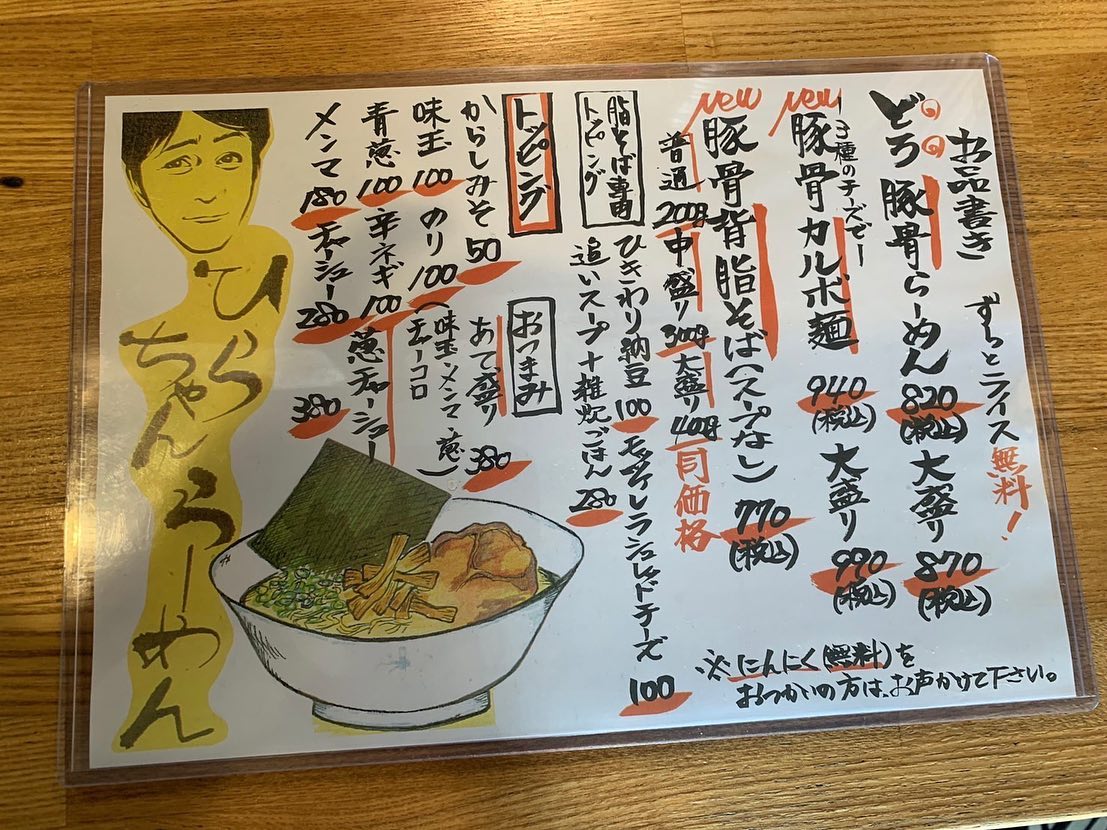 お品書き
ずらっとライス無料！
どろ豚骨らーめん 820(税込) 大盛り 870(税込)
New
豚骨カルボ麺 940(税込) 大盛り 990(税込)
ー3種のチーズでー
New
豚骨背脂そば(スープなし) 770(税込)
普通200g 中盛り300g 大盛り400g 同価格
脂そば専用トッピング
ひきわり納豆 100
モッツァレラシュレッドチーズ 100
追いスープ＋雑炊ごはん 280
トッピング
からしみそ 50
味玉 100
のり 100
青葱 100
辛ネギ 100
葱チャーシュー 380
メンマ 180
チャーシュー 280
おつまみ
あて盛り 380
(味玉・メンマ・葱・チャーコロ)
※にんにく(無料)を
おつかいの方は、お声かけて下さい。
ひらちゃんらーめん